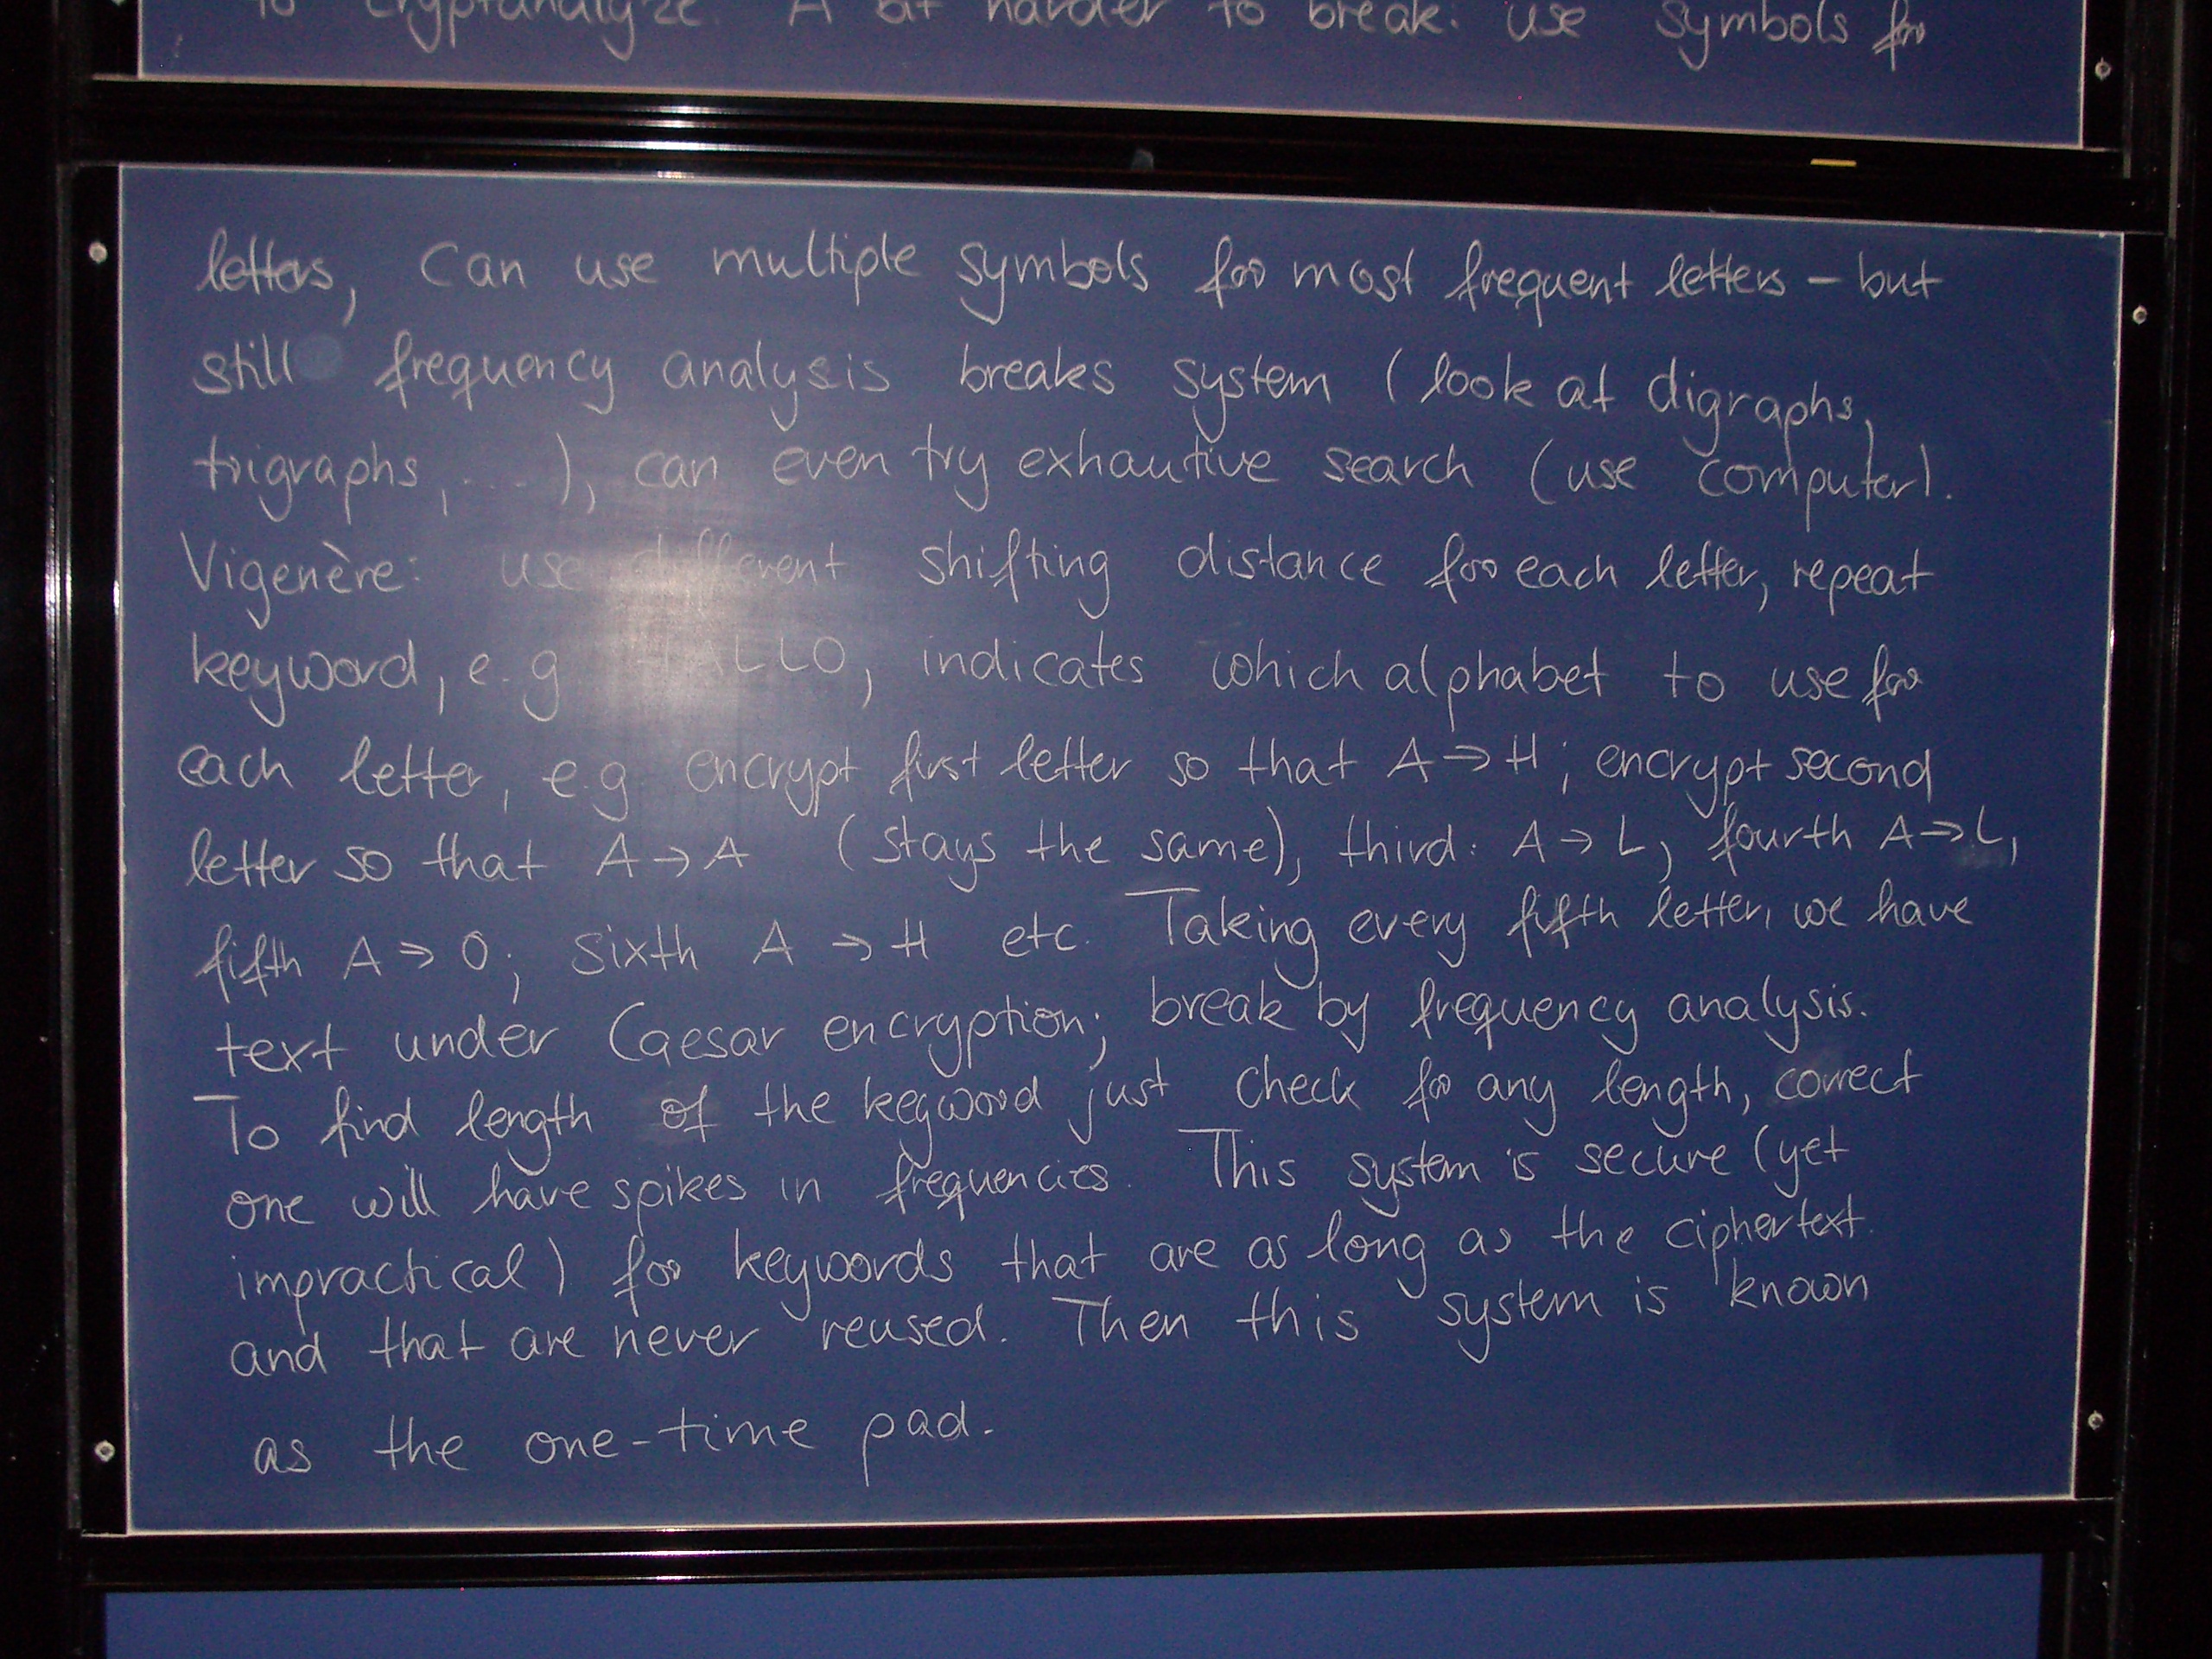 to cryptanalyze. A bit harder to break: use symbols for
letters, can use multiple symbols for most frequent letters – but
still frequency analysis breaks system (look at digraphs,
trigraphs, ....), can even try exhautive search (use computer).
Vigenère: use different shifting distance for each letter, repeat
keyword, e.g HALLO, indicates which alphabet to use for
each letter, e.g encrypt first letter so that A → H; encrypt second
letter so that A → A (stays the same), third: A → L, fourth A → L,
fifth A → O; sixth A → H etc. Taking every fifth letter, we have
text under Caesar encryption; break by frequency analysis.
To find length of the keyword just check for any length, correct
one will have spikes in frequencies. This system is secure (yet
impractical) for keywords that are as long as the ciphertext
and that are never reused. Then this system is known
as the one-time pad.